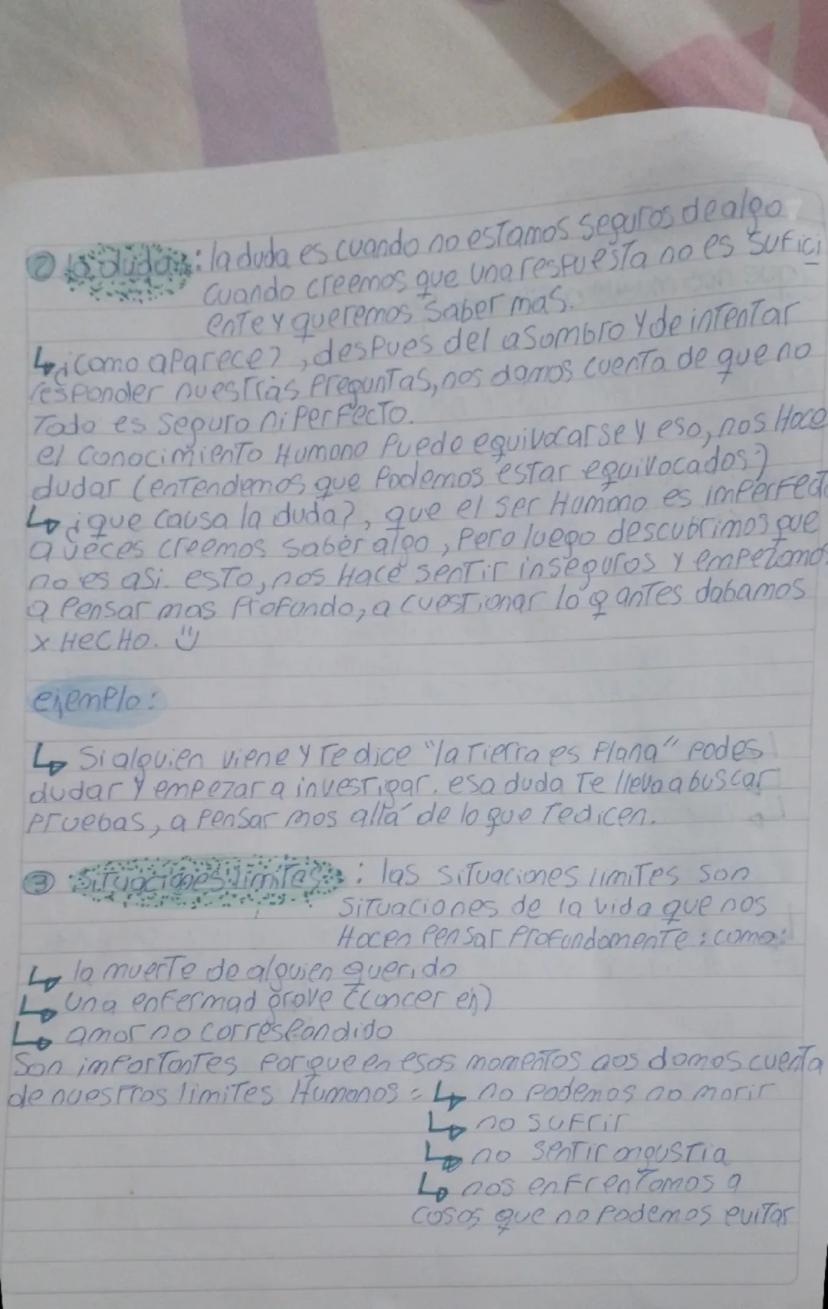 ② la duda: la duda es cuando no estamos seguros de algo
cuando creemos que una respuesta no es sufici
ente y queremos saber mas.
↳ ¿como aparece?, despues del asombro y de intentar
responder nuestras preguntas, nos damos cuenta de que no
Todo es seguro ni perfecto.
el conocimiento Humano puede equivocarse y eso, nos Hace
dudar (entendemos que podemos estar equivocados)
↳ ¿que causa la duda?, que el ser Humano es imperfecto
a veces creemos saber algo, pero luego descubrimos que
no es asi. esto, nos Hace sentir inseguros y empezamos
a pensar mas profundo, a cuestionar lo q antes dabamos
x HECHO. :)
ejemplo:
↳ Si alguien viene y te dice "la Tierra es plana" podes
dudar y empezar a investigar. esa duda te lleva a buscar
pruebas, a pensar mas allá de lo que te dicen.
③ situaciones limites: las situaciones limites son
situaciones de la vida que nos
Hacen pensar profundamente: como:
↳ la muerte de alguien querido
↳ una enfermad grave (cancer ej)
↳ amor no correspondido
Son importantes porque en esos momentos nos damos cuenta
de nuestros limites Humanos: ↳ no podemos no morir
↳ no sufrir
↳ no sentir angustia
↳ nos enfrentamos a
cosas que no podemos evitar